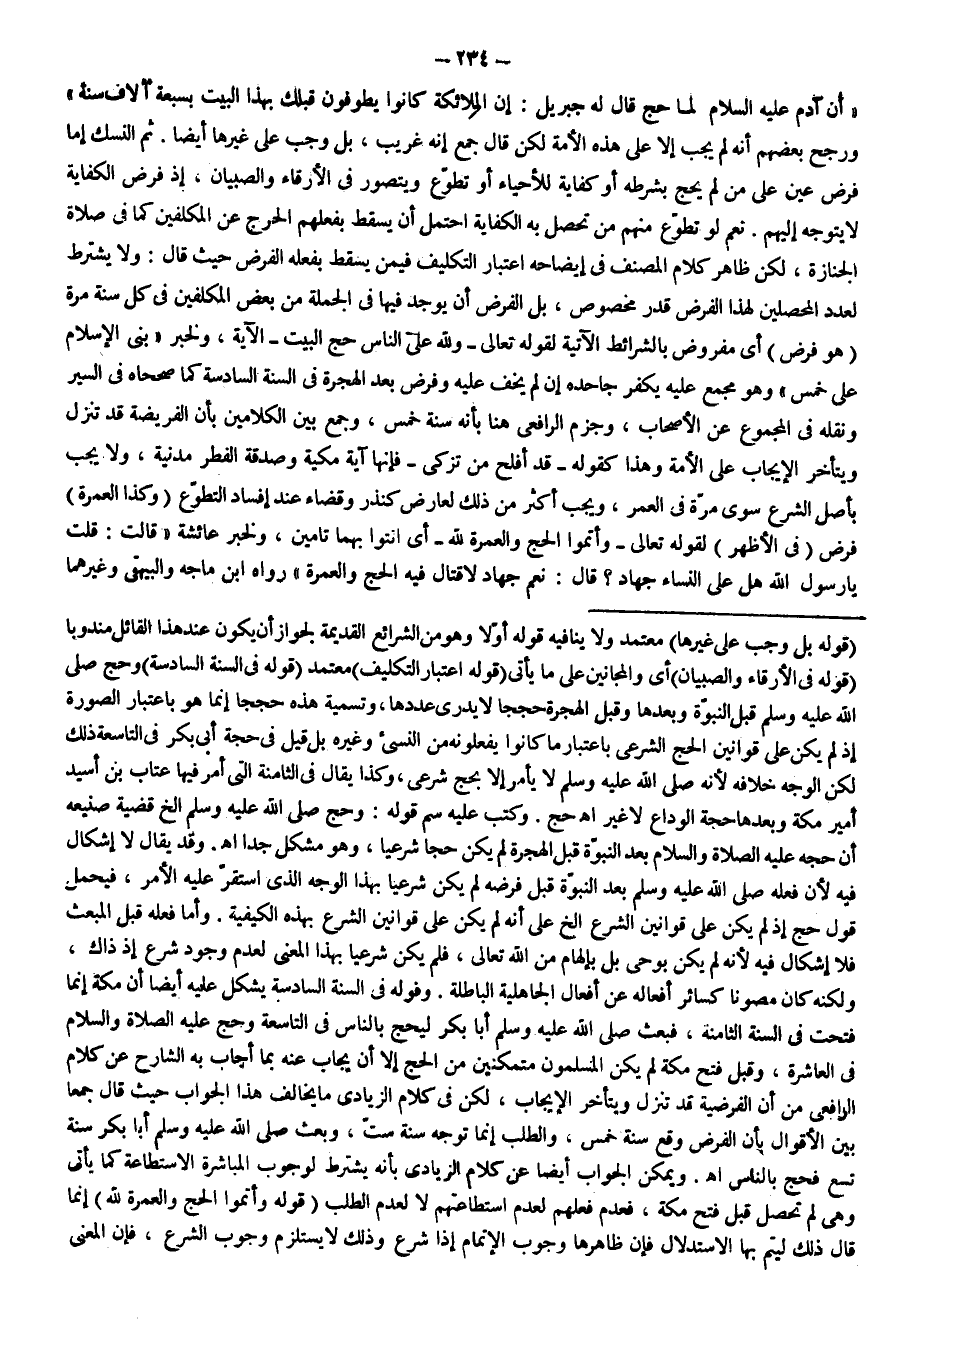 – ٢٣٤ –
« أن آدم عليه السلام لما حج قال له جبريل : إن الملائكة كانوا يطوفون قبلك بهذا البيت بسبعة آلاف سنة »
ورجح بعضهم أنه لم يجب إلا على هذه الأمة لكن قال جمع إنه غريب ، بل وجب على غيرها أيضا . ثم النسك إما
فرض عين على من لم يحج بشرطه أو كفاية للأحياء أو تطوّع ويتصور فى الأرقاء والصبيان ، إذ فرض الكفاية
لايتوجه إليهم . نعم لو تطوّع منهم من تحصل به الكفاية احتمل أن يسقط بفعلهم الحرج عن المكلفين كما فى صلاة
الجنازة ، لكن ظاهر كلام المصنف فى إيضاحه اعتبار التكليف فيمن يسقط بفعله الفرض حيث قال : ولا يشترط
لعدد المحصلين لهذا الفرض قدر مخصوص ، بل الفرض أن يوجد فيها فى الجملة من بعض المكلفين فى كل سنة مرة
( هو فرض ) أى مفروض بالشرائط الآتية لقوله تعالى ـ ولله على الناس حج البيت ـ الآية ، ولخبر « بنى الإسلام
على خمس » وهو مجمع عليه يكفر جاحده إن لم يخف عليه وفرض بعد الهجرة فى السنة السادسة كما صححاه فى السير
ونقله فى المجموع عن الأصحاب ، وجزم الرافعى هنا بأنه سنة خمس ، وجمع بين الكلامين بأن الفريضة قد تنزل
ويتأخر الإيجاب على الأمة وهذا كقوله ـ قد أفلح من تزكى ـ فإنها آية مكية وصدقة الفطر مدنية ، ولا يجب
بأصل الشرع سوى مرّة فى العمر ، ويجب أكثر من ذلك لعارض كنذر وقضاء عند إفساد التطوّع ( وكذا العمرة )
فرض ( فى الأظهر ) لقوله تعالى ـ وأتموا الحج والعمرة لله ـ أى ائتوا بهما تامين ، ولخبر عائشة « قالت : قلت
يارسول الله هل على النساء جهاد ؟ قال : نعم جهاد لاقتال فيه الحج والعمرة » رواه ابن ماجه والبيهقى وغيرهما
(قوله بل وجب على غيرها) معتمد ولا ينافيه قوله أوّلا وهو من الشرائع القديمة لجواز أن يكون عند هذا القائل مندوبا
(قوله فى الأرقاء والصبيان) أى والمجانين على ما يأتى (قوله اعتبار التكليف) معتمد (قوله فى السنة السادسة) وحج صلى
الله عليه وسلم قبل النبوّة وبعدها وقبل الهجرة حججا لايدرى عددها، وتسمية هذه حججا إنما هو باعتبار الصورة
إذ لم يكن على قوانين الحج الشرعى باعتبار ما كانوا يفعلونه من النسىء وغيره بل قيل فى حجة أبى بكر فى التاسعة ذلك
لكن الوجه خلافه لأنه صلى الله عليه وسلم لا يأمر إلا بحج شرعى، وكذا يقال فى الثامنة التى أمر فيها عتاب بن أسيد
أمير مكة وبعدها حجة الوداع لاغير اه حج . وكتب عليه سم قوله : وحج صلى الله عليه وسلم الخ قضية صنيعه
أن حجه عليه الصلاة والسلام بعد النبوّة قبل الهجرة لم يكن حجا شرعيا ، وهو مشكل جدا اه . وقد يقال لا إشكال
فيه لأن فعله صلى الله عليه وسلم بعد النبوّة قبل فرضه لم يكن شرعيا بهذا الوجه الذى استقرّ عليه الأمر ، فيحمل
قول حج إذ لم يكن على قوانين الشرع الخ على أنه لم يكن على قوانين الشرع بهذه الكيفية . وأما فعله قبل المبعث
فلا إشكال فيه لأنه لم يكن بوحى بل بإلهام من الله تعالى ، فلم يكن شرعيا بهذا المعنى لعدم وجود شرع إذ ذاك ،
ولكنه كان مصونا كسائر أفعاله عن أفعال الجاهلية الباطلة . وقوله فى السنة السادسة يشكل عليه أيضا أن مكة إنما
فتحت فى السنة الثامنة ، فبعث صلى الله عليه وسلم أبا بكر ليحج بالناس فى التاسعة وحج عليه الصلاة والسلام
فى العاشرة ، وقبل فتح مكة لم يكن المسلمون متمكنين من الحج إلا أن يجاب عنه بما أجاب به الشارح عن كلام
الرافعى من أن الفرضية قد تنزل ويتأخر الإيجاب ، لكن فى كلام الزيادى مايخالف هذا الجواب حيث قال جمعا
بين الأقوال بأن الفرض وقع سنة خمس ، والطلب إنما توجه سنة ستّ ، وبعث صلى الله عليه وسلم أبا بكر سنة
تسع فحج بالناس اه . ويمكن الجواب أيضا عن كلام الزيادى بأنه يشترط لوجوب المباشرة الاستطاعة كما يأتى
وهى لم تحصل قبل فتح مكة ، فعدم فعلهم لعدم استطاعتهم لا لعدم الطلب ( قوله وأتموا الحج والعمرة لله ) إنما
قال ذلك ليتم بها الاستدلال فإن ظاهرها وجوب الإتمام إذا شرع وذلك لايستلزم وجوب الشرع ، فإن المعنى